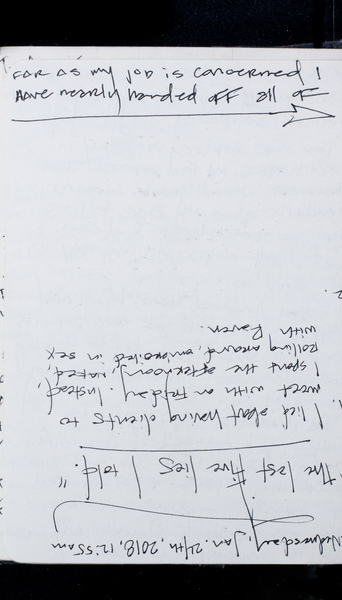 FAR AS my job is concerned I
HAVE nearly handed off all of
Wednesday, Jan. 24th, 2018, 12:55am
"The last five lies I told."
1. I lied about having clients to
meet with on Friday. Instead,
I spent the afternoon, naked,
rolling around, embroiled in sex
with Raven.
2.